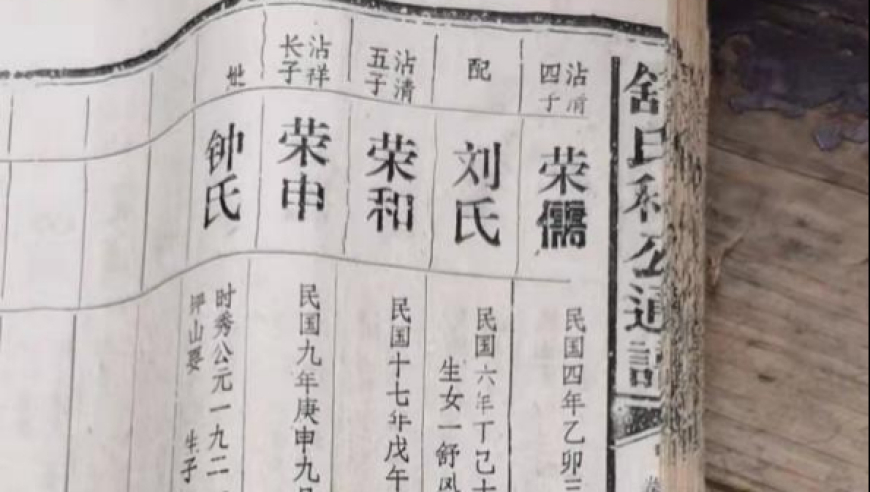 舒氏和公通譜
沾清四子
荣儒
民国四年乙卯三
配
刘氏
民国六年丁己十
生女一舒风
沾清五子
荣和
民国十七年戊午
沾祥长子
荣申
民国九年庚申九月
妣
钟氏
时秀公元一九二
坪山要 生子